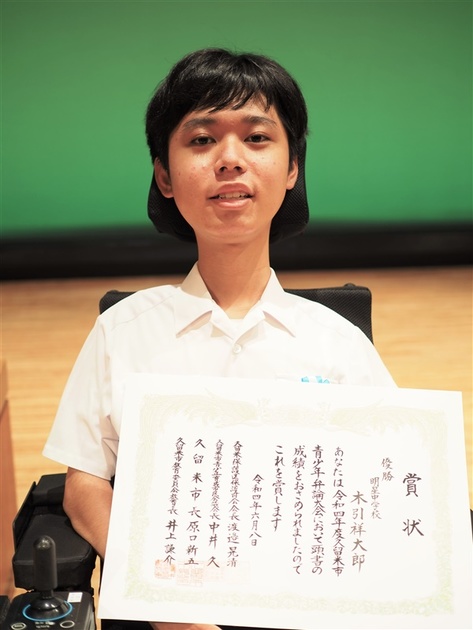 賞状
優勝
明星中学校
木引祥太郎
あなたは令和四年度久留米市
青少年弁論大会において頭書の
成績をおさめられましたので
これを賞します
令和四年六月八日
会長 渡邉晃清
中井 久
久留米市長 原口新五
久留米市教育委員会教育長 井上謙介